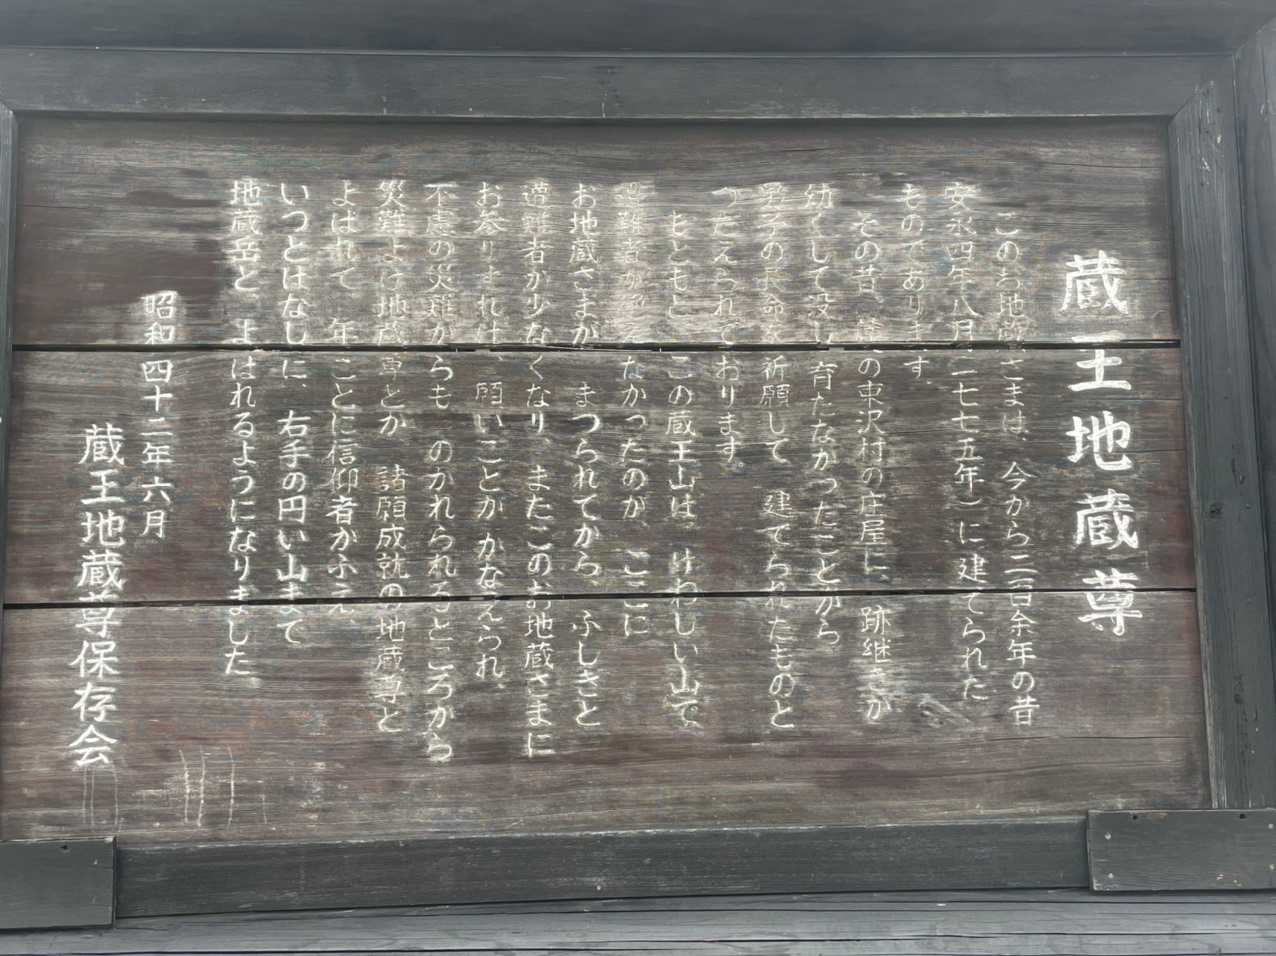 蔵王地蔵尊
このお地蔵さまは、今から二百余年の昔
安永四年八月(一七七五年)に建てられた
ものであります
その昔、の東沢村の庄屋に、跡継ぎが
幼くして没し育たなかったことから
男子の長命を祈願して建てられたものと
つたえられております
もともとこの蔵王山は、けわしい山で
遭難者がなかったのが、ここに
お地蔵さまがまつられてから、ふしぎと
遭難者が少なくなり、またこのお地蔵さまに
お参りすれば願いごとがかなえられ、
不慮の災難からも、のがれられるところから
災難よけ地蔵尊とか、諸願成就の地蔵尊と
よばれて、年ごとに信仰者がふえ
いつとはなしに、右手の円い山まで
地蔵岳と、よばれるようになりました
昭和四十二年六月
蔵王地蔵尊保存会